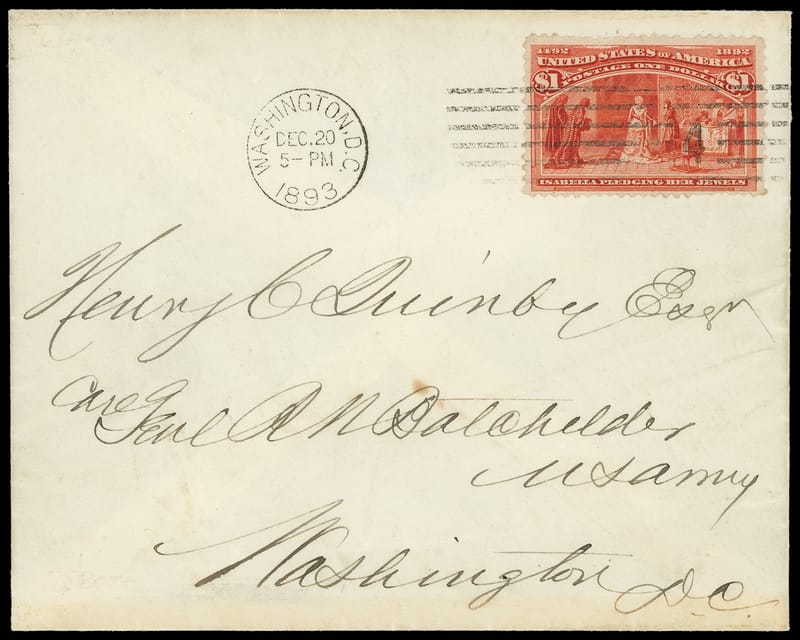 1492 1892
UNITED STATES OF AMERICA
$1 POSTAGE ONE DOLLAR $1
4
ISABELLA PLEDGING HER JEWELS
WASHINGTON, D.C.
DEC. 20
5-PM
1893
Henry C Quinby Esqr
Care
Genl R N Batchelder
U S Army
Washington D.C.